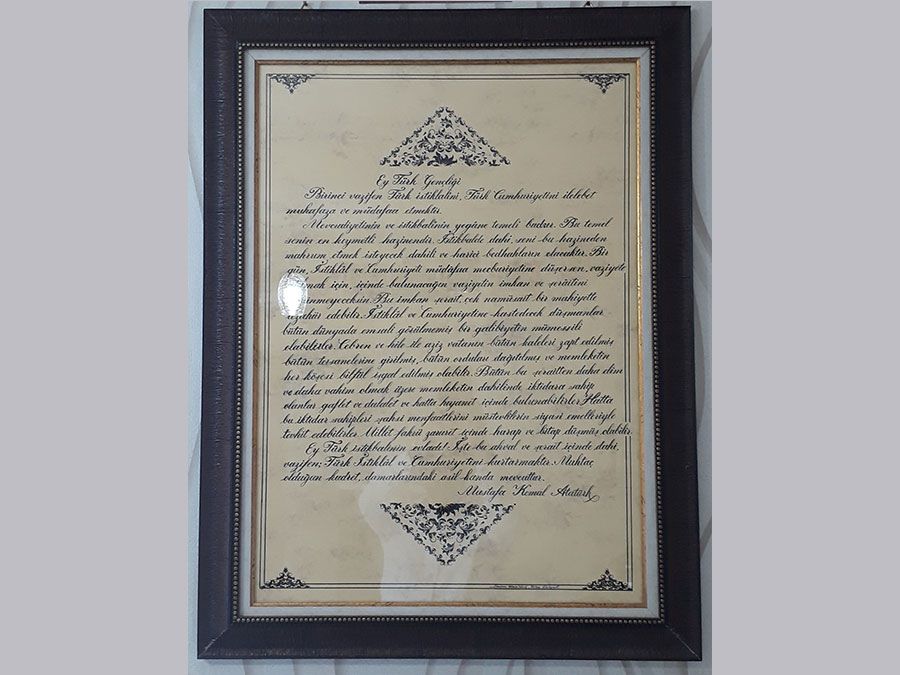 Ey Türk Gençliği
Birinci vazifen Türk istiklalini, Türk Cumhuriyetini ilelebet
muhafaza ve müdafaa etmektir.
Mevcudiyetinin ve istikbalinin yegâne temeli budur. Bu temel
senin en kıymetli hazinendir. İstikbalde dahi, seni bu hazineden
mahrum etmek isteyecek dahili ve harici bedhahların olacaktır. Bir
gün, İstiklâl ve Cumhuriyeti müdafaa mecburiyetine düşersen, vaziyete
için, içinde bulunacağın vaziyetin imkan ve şerâitini
Bu imkan şerait, çok namüsait bir mahiyette
edebilir. İstiklâl ve Cumhuriyetine kastedecek düşmanlar
bütün dünyada emsali görülmemiş bir galibiyetin mümessili
olabilirler. Cebren ve hile ile aziz vatanın bütün kaleleri zapt edilmiş
bütün tersanelerine girilmiş, bütün orduları dağıtılmış ve memleketin
her köşesi bilfiil işgal edilmiş olabilir. Bütün bu şeraitten daha elim
ve daha vahim olmak üzere memleketin dahilinde iktidara sahip
olanlar gaflet ve dalalet ve hatta hıyanet içinde bulunabilirler. Hatta
bu iktidar sahipleri şahsi menfaatlerini müstevlilerin siyasi emelleriyle
tevhit edebilirler. Millet fakrü zaruret içinde harap ve bitap düşmüş olabilir.
Ey Türk istikbalinin evladı! İşte bu ahval ve şerait içinde dahi,
vazifen; Türk İstiklâl ve Cumhuriyetini kurtarmaktır. Muhtaç
olduğun kudret, damarlarındaki asil kanda mevcuttur.
Mustafa Kemal Atatürk